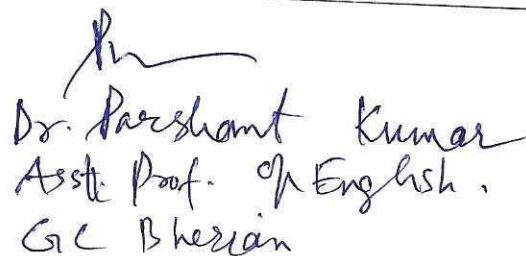 Dr. Parshant Kumar
Asstt. Prof. of English.
GC Bherian